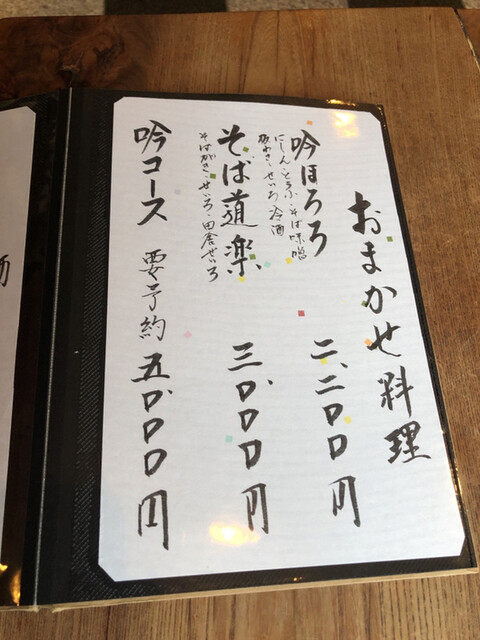 おまかせ料理
吟ほろろ 二、二〇〇円
にしん・とうふ・そば味噌
板わさ・せいろ・冷酒
そば道楽 三、〇〇〇円
そばがき・せいろ・田舎せいろ
吟コース 要予約 五、〇〇〇円